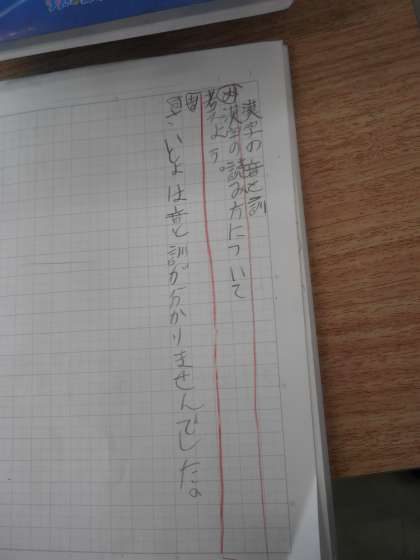 漢字の音と訓
め 漢字の読み方について
考えよう。
さいしょは音と訓が分かりませんでした。